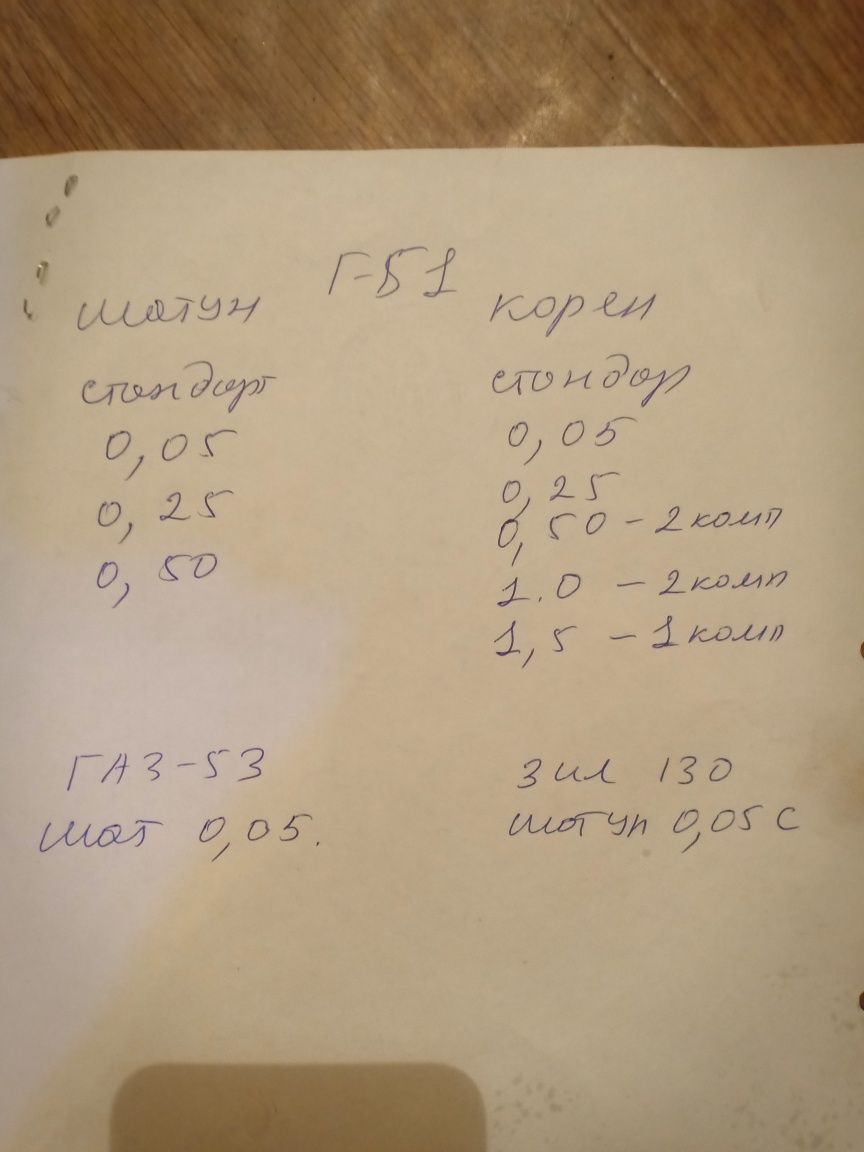 Г-51
шатун
корен
стандарт
стандар
0,05
0,05
0,25
0,25
0,50
0,50 - 2 комп
1.0 - 2 комп
1,5 - 1 комп
ГАЗ-53
Зил 130
шат 0,05.
шатун 0,05 с